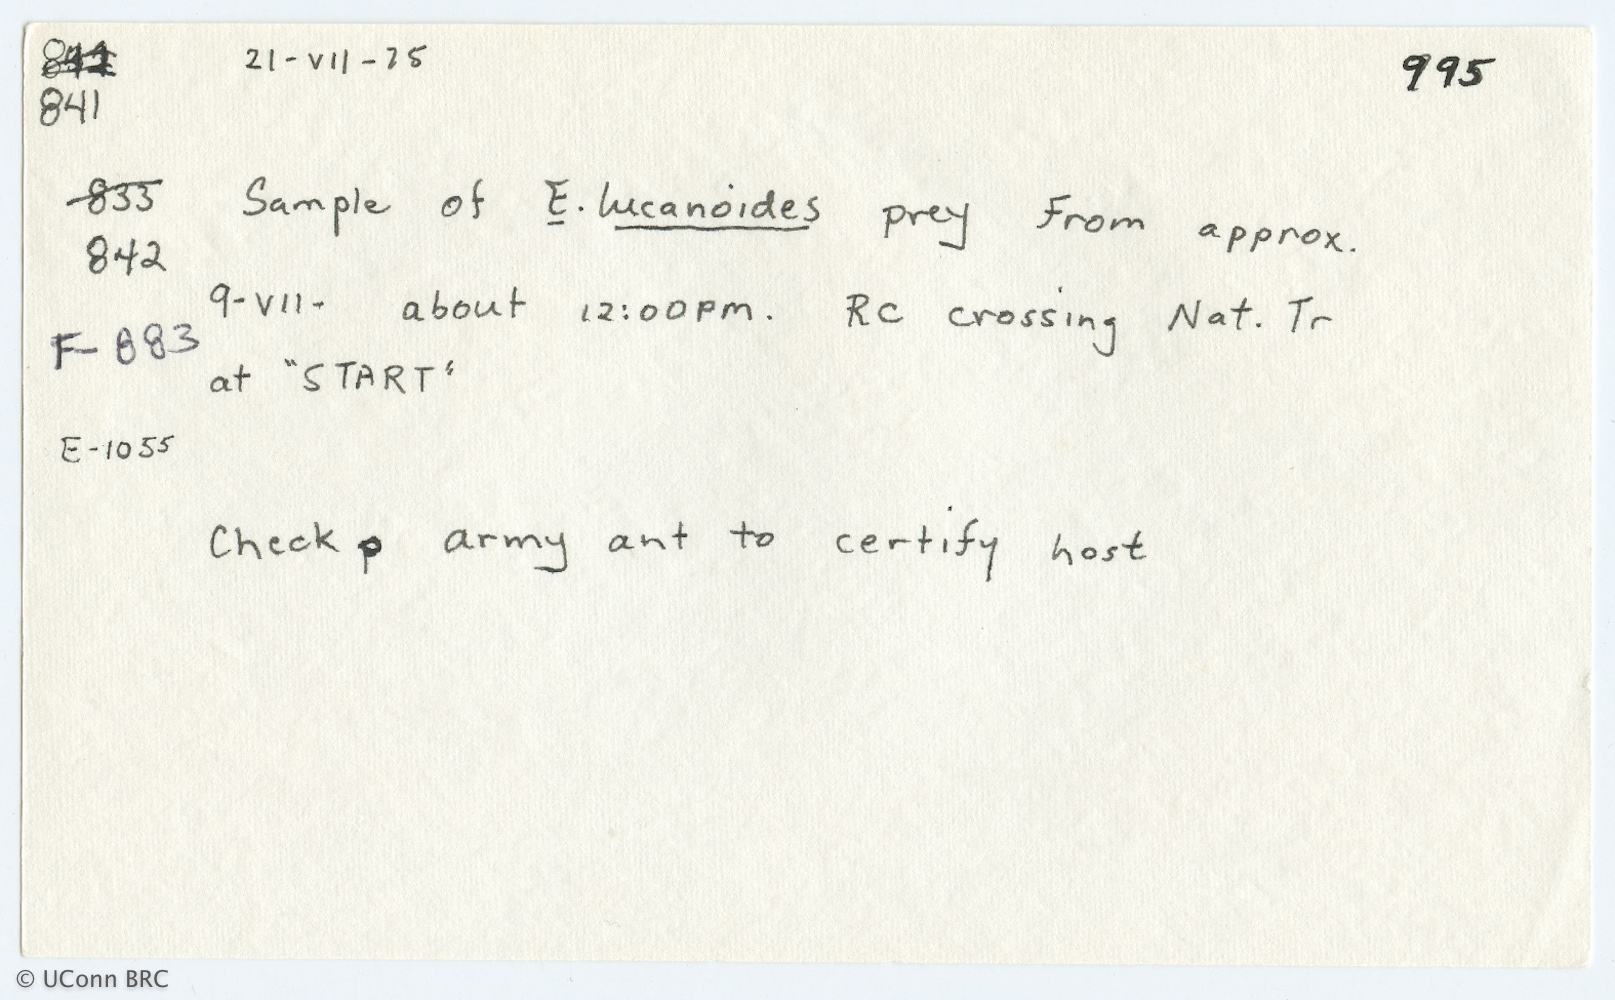 21-VII-75 995
841
833 Sample of E. lucanoides prey from approx.
842
9-VII- about 12:00pm. RC crossing Nat. Tr
F-883
at "START"
E-1055
Check army ant to certify host
© UConn BRC